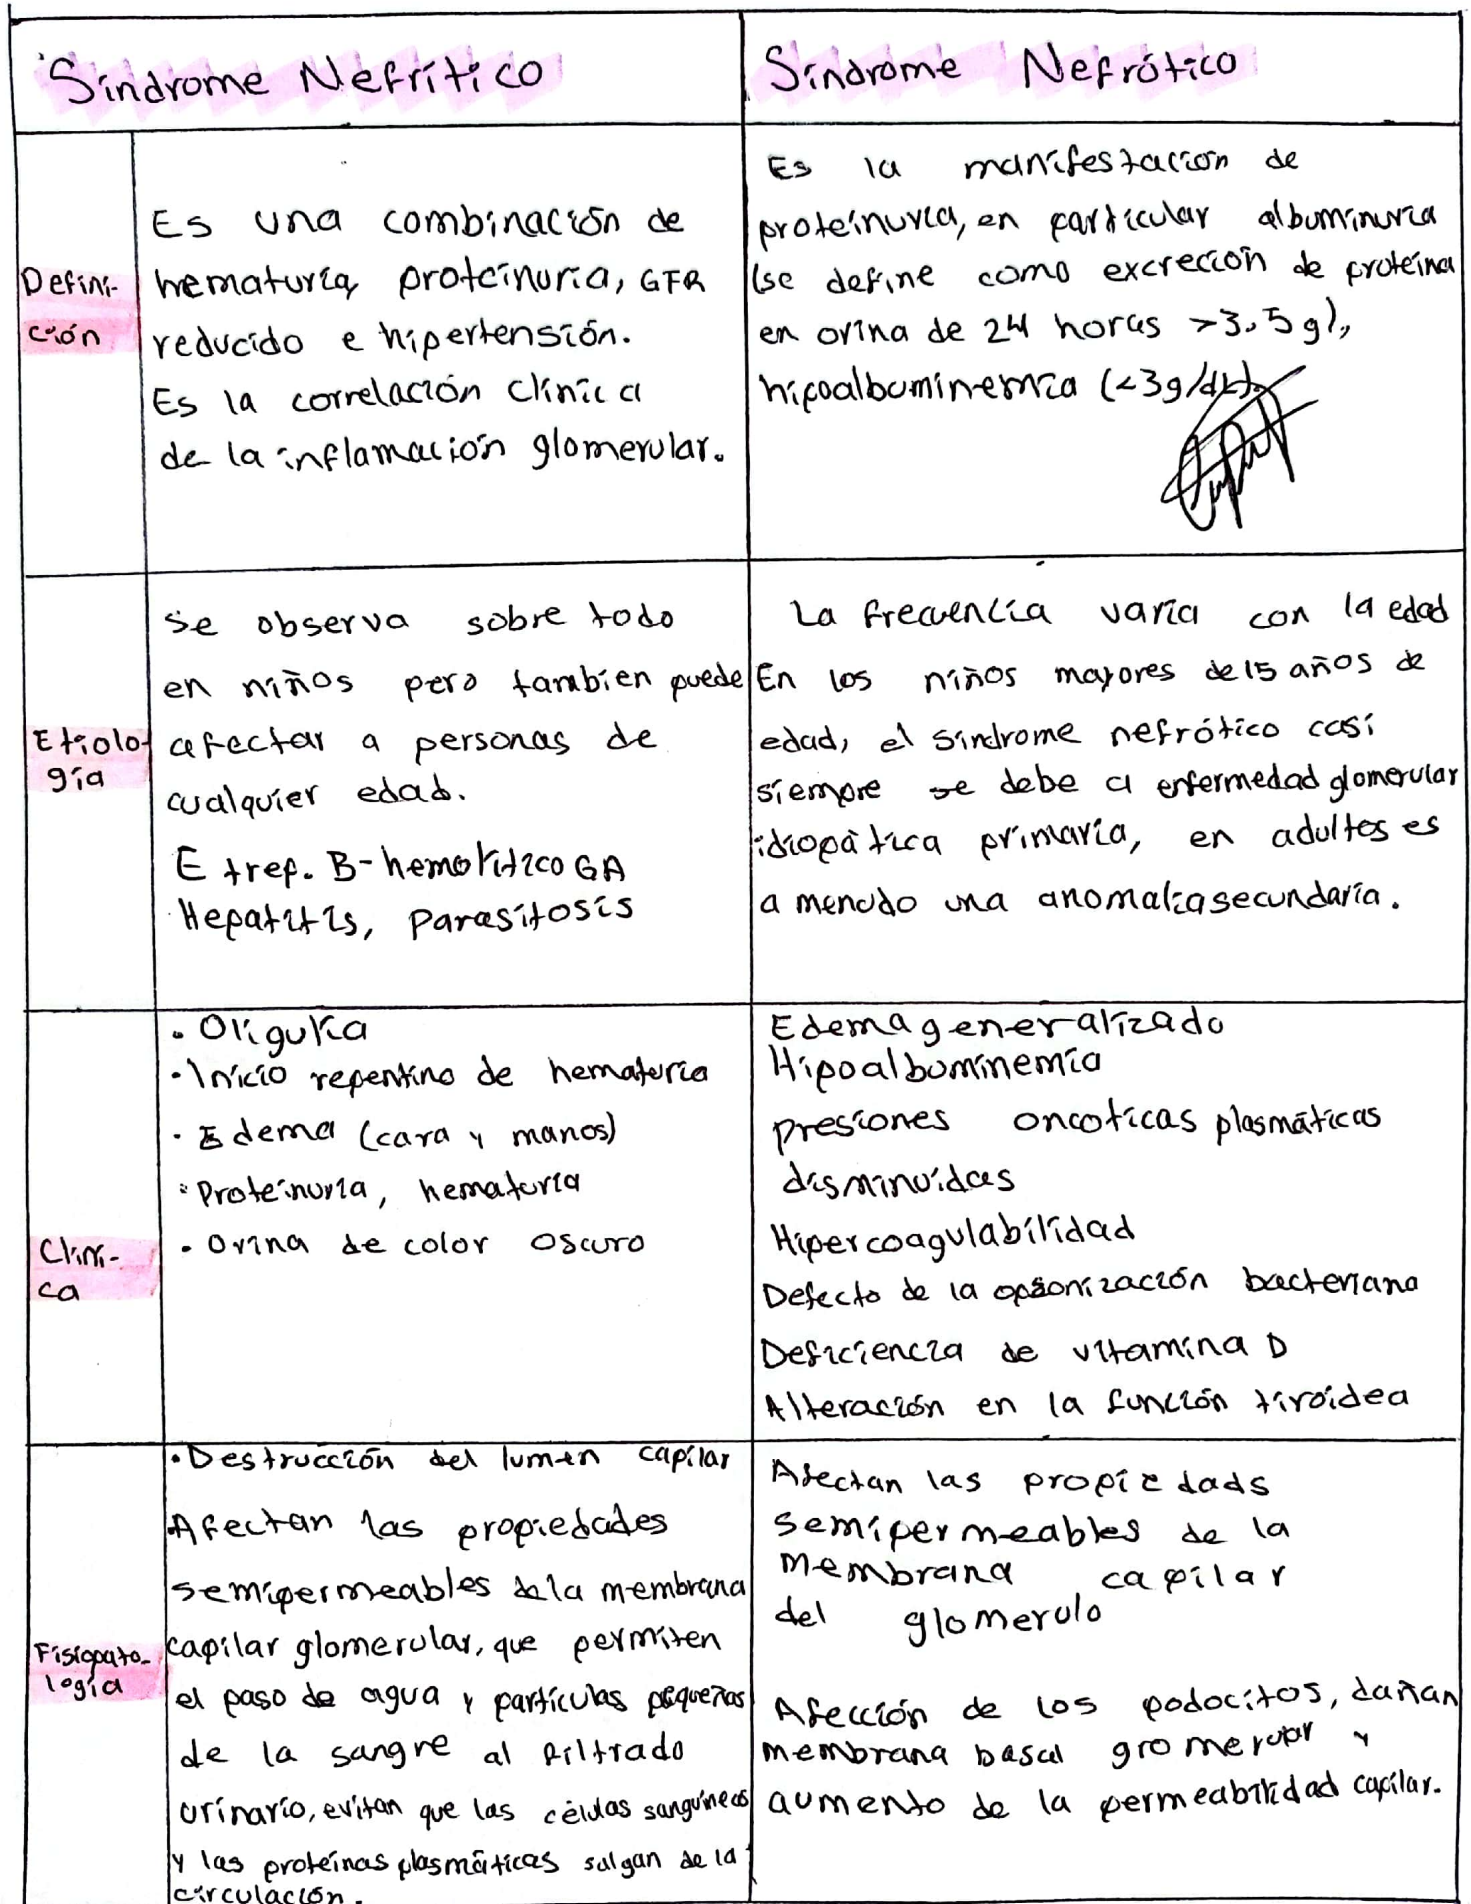 Síndrome Nefrítico
Síndrome Nefrótico
Defini-
ción
Es una combinación de
hematuria, proteinuria, GFR
reducido e hipertensión.
Es la correlación clínica
de la inflamación glomerular.
Es la manifestación de
proteinuria, en particular albuminuria
(se define como excreción de proteina
en orina de 24 horas >3.5 g),
hipoalbuminemia (<3g/dL).
Etiolo-
gía
Se observa sobre todo
en niños pero tambien puede
afectar a personas de
cualquier edad.
Etrep. B-hemolitico GA
Hepatitis, Parasitosis
La frecuencia varia con la edad
En los niños mayores de 15 años de
edad, el síndrome nefrótico casi
siempre se debe a enfermedad glomerular
idiopática primaria, en adultos es
a menudo una anomalia secundaria.
Clíni-
ca
• Oliguria
• Inicio repentino de hematuria
• Edema (cara y manos)
• Proteinuria, hematuria
• Orina de color oscuro
Edema generalizado
Hipoalbuminemia
presiones oncoticas plasmáticas
disminuidas
Hipercoagulabilidad
Defecto de la opsonización bacteriana
Deficiencia de vitamina D
Alteración en la función tiroidea
Fisiopato-
logía
• Destrucción del lumen capilar
Afectan las propiedades
semipermeables de la membrana
capilar glomerular, que permiten
el paso de agua y partículas pequeñas
de la sangre al filtrado
urinario, evitan que las células sanguíneas
y las proteínas plasmáticas salgan de la
circulación.
Afectan las propiedads
semipermeables de la
membrana capilar
del glomerulo
Afección de los podocitos, dañan
membrana basal gromerular y
aumento de la permeabilidad capilar.